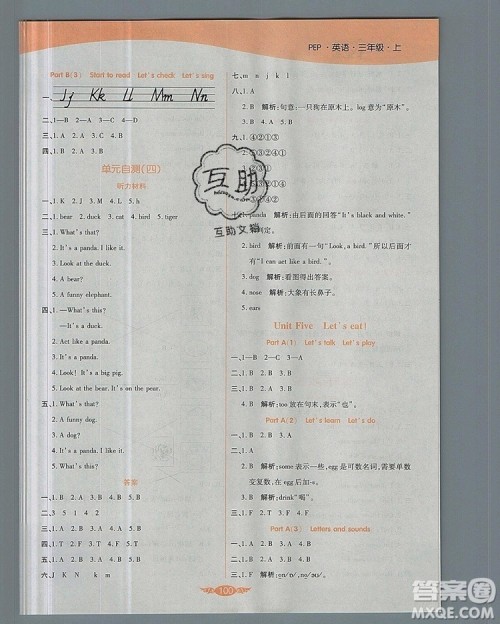 PEP·英语·三年级·上
Part B(3) Start to read Let's check Let's sing
一、Jj Kk Ll Mm Nn
二、1—B 2—A 3—D 4—C
三、1. A 2. A 3. B
四、1. B 2. B 3. B
单元自测(四)
听力材料
一、1. K 2. L 3. J 4. M 5. N
二、1. bear 2. duck 3. cat 4. bird 5. tiger
三、1. What's that?
2. It's a panda. I like it.
3. Look at the duck.
4. A bear?
5. A funny elephant.
四、1. —What's this?
—It's a duck.
2. Act like a panda.
3. It's a panda. I like it.
4. Look! It's a big pig.
5. It's a bird. Look on the pear.
五、1. What's that?
2. A funny dog.
3. It's a panda. I like it.
4. A dog?
5. What's this?
答案
一、1. A 2. A 3. B 4. A 5. B
二、3 5 1 4 2
三、1. A 2. A 3. B 4. B 5. B
四、1. B 2. A 3. B 4. B 5. A
五、1. B 2. A 3. A 4. A 5. B
六、J K N k m
七、m n j k l
八、1. A
2. B 解析:句意:一只狗在原木上。log 意为"原木"。
3. A
九、1. ④②①③
2. ⑤③①②④
3. ②④①③
1. panda 解析:由后面的回答"It's black and white."
判定。
2. bird 解析:前面有一句"Look, a bird.",所以
"I can act like a bird."
3. dog 解析:看图得出答案。
4. nose 解析:大象有长鼻子。
5. ears
Unit Five Let's eat!
Part A(1) Let's talk Let's play
一、1—B 2—C 3—A
二、1. A 2. A 3. A
三、1. B 解析:too 放在句末,表示"也"。
Part A(2) Let's learn Let's do
一、1. A 2. A 3. B 4. B
二、1. B 2. B 3. A 4. B
三、1. B 解析:some 表示一些,egg 是可数名词,需要单数
变复数,在 egg 后加-s。
2. B 解析:drink"喝"。
Part A(3) Letters and sounds
一、1. A 2. B 3. A
二、1. B 2. B 3. A
100
互助
互助文档
答案圈
MXQE.COM